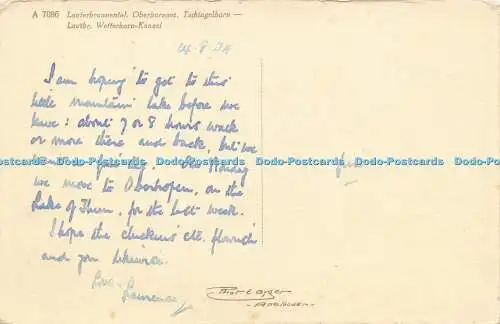 A 7096 Lauterbrunnental. Oberhornsee. Tschingelhorn —
Lautbr. Wetterhorn-Kanzel
I am hoping to get to this
little mountain lake before we
leave: about 7 or 8 hours walk
or more there and back, but we
we move to Oberhofen, on the
Lake of Thun, for the last week.
I hope the chickens etc. flourish
and you likewise.
Love -
Laurence
Dodo-Postcards Dodo-Postcards Dodo-Postcards Dodo-Postcards Dodo-Postcards Dodo-Postcards